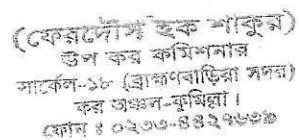 (ফেরদৌস হক শাকুর)
উপ কর কমিশনার
সার্কেল-১৮ (ব্রাহ্মণবাড়িয়া সদর)
কর অঞ্চল-কুমিল্লা।
ফোন ঃ